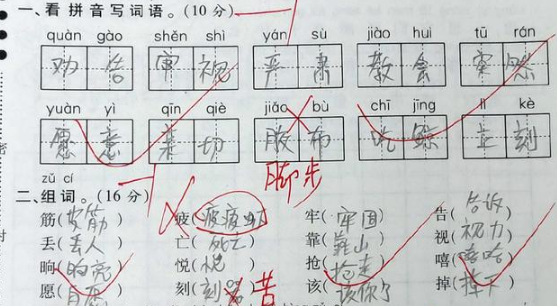 一、看拼音写词语。(10分)
quàn gào shěn shì yán sù jiào huì tū rán
劝告 审视 严肃 教会 突然
yuàn yì qīn qiè jiǎo bù chī jīng lì kè
愿意 亲切 胶布 吃鲸 立刻
脚步
zǔ cí
二、组词。(16分)
筋(皮筋) 疲(疲疲) 牢(牢固) 告(告诉)
丢(丢人) 亡(死亡) 靠(靠山) 视(视力)
晌(响亮) 悦(悦) 抢(抢走) 嘻(嘻哈)
愿(自愿) 刻(刻) 苦 该(该你了) 掉(掉下)